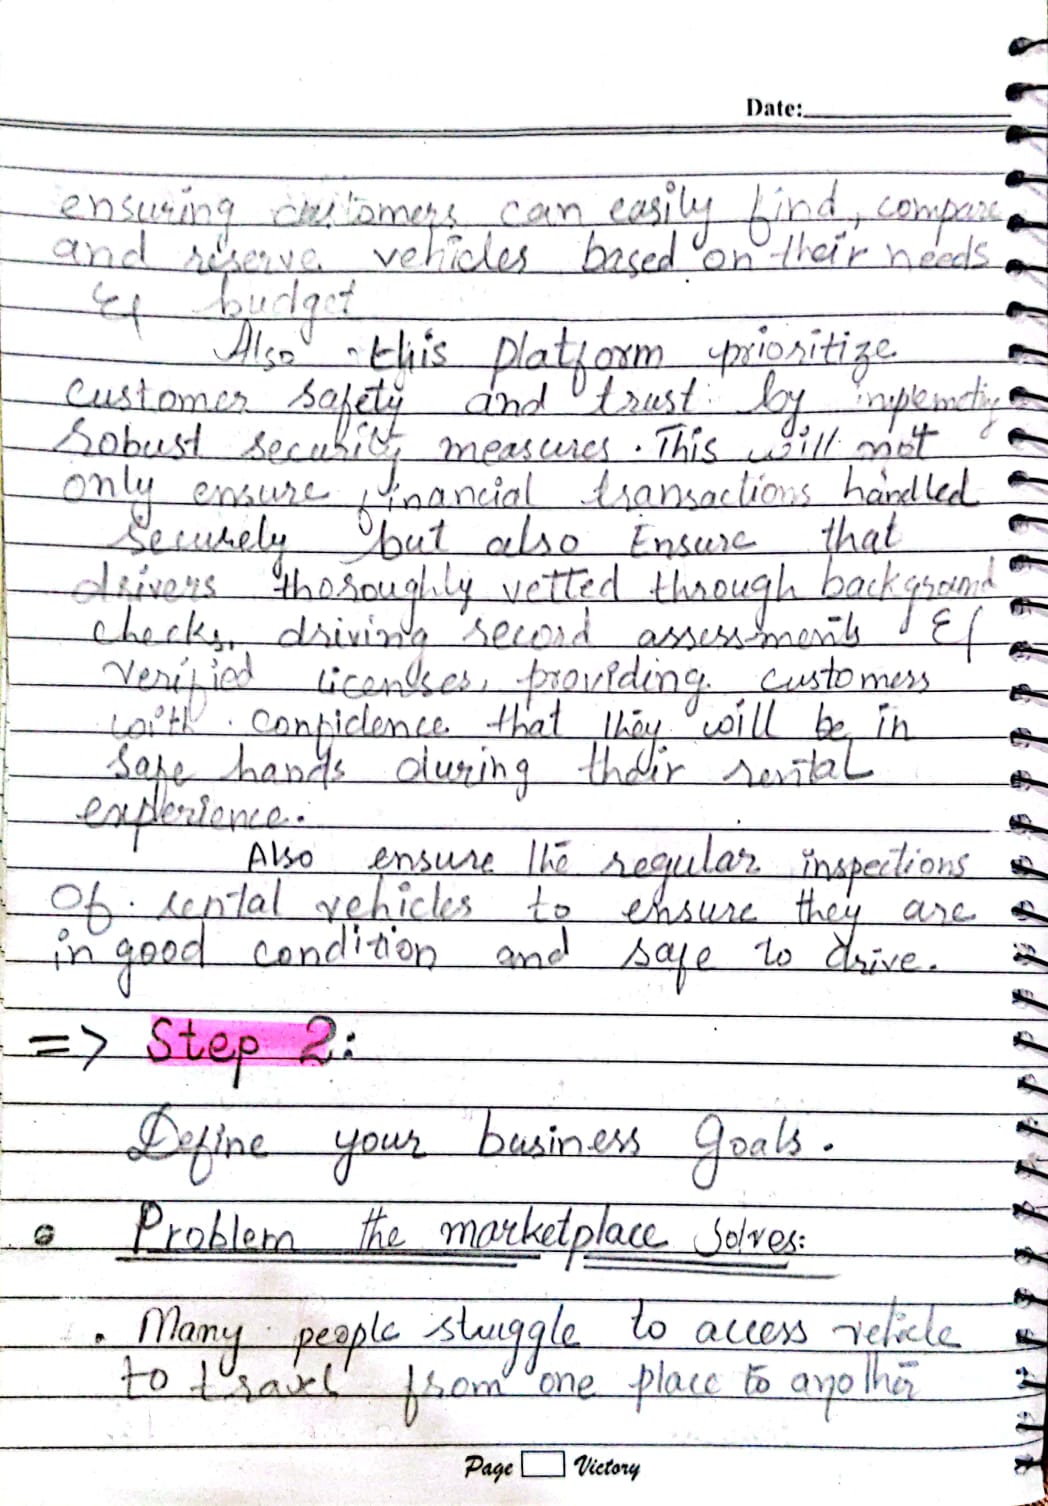 Date:
ensuring customers can easily find, compare
and reserve vehicles based on their needs
& budget
Also this platform prioritize
customer safety and trust by implemeting
robust security measures. This will not
only ensure financial transactions handled
securely but also Ensure that
drivers thoroughly vetted through background
checks, driving record assessments &
verified licenses, providing customers
with confidence that they will be in
safe hands during their rental
experience.
Also ensure the regular inspections
Of rental vehicles to ensure they are
in good condition and safe to drive.
=> Step 2:
Define your business goals.
Problem the marketplace solves:
• Many people struggle to access vehicle
to travel from one place to another
Page Victory